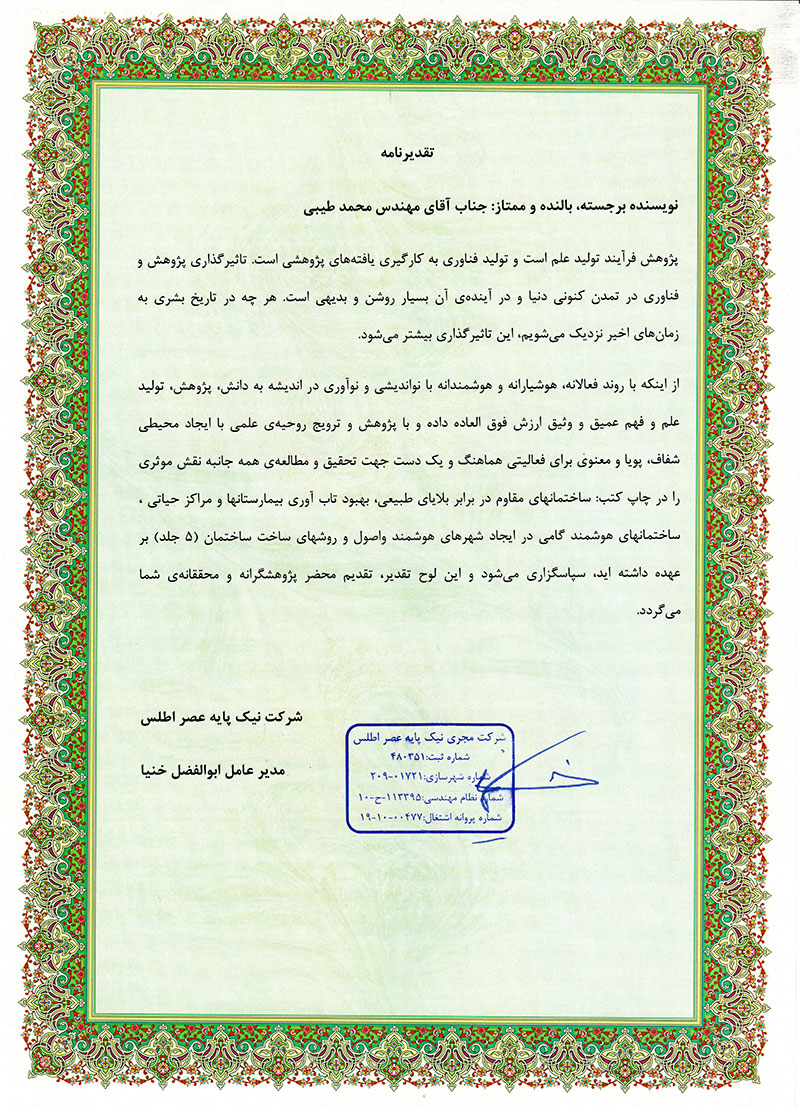 تقدیرنامه
نویسنده برجسته، بالنده و ممتاز: جناب آقای مهندس محمد طیبی
پژوهش فرآیند تولید علم است و تولید فناوری به کارگیری یافته‌های پژوهشی است. تاثیرگذاری پژوهش و
فناوری در تمدن کنونی دنیا و در آینده‌ی آن بسیار روشن و بدیهی است. هر چه در تاریخ بشری به
زمان‌های اخیر نزدیک می‌شویم، این تاثیرگذاری بیشتر می‌شود.
از اینکه با روند فعالانه، هوشیارانه و هوشمندانه با نواندیشی و نوآوری در اندیشه به دانش، پژوهش، تولید
علم و فهم عمیق و وثیق ارزش فوق العاده داده و با پژوهش و ترویج روحیه‌ی علمی با ایجاد محیطی
شفاف، پویا و معنوی برای فعالیتی هماهنگ و یک دست جهت تحقیق و مطالعه‌ی همه جانبه نقش موثری
را در چاپ کتب: ساختمانهای مقاوم در برابر بلایای طبیعی، بهبود تاب آوری بیمارستانها و مراکز حیاتی ،
ساختمانهای هوشمند گامی در ایجاد شهرهای هوشمند واصول و روشهای ساخت ساختمان (۵ جلد) بر
عهده داشته اید، سپاسگزاری می‌شود و این لوح تقدیر، تقدیم محضر پژوهشگرانه و محققانه‌ی شما
می‌گردد.
شرکت نیک پایه عصر اطلس
مدیر عامل ابوالفضل خنیا
شرکت مجری نیک پایه عصر اطلس
شماره ثبت:۴۸۰۳۵۱
شماره شهرسازی:۰۱۷۲۱-۲۰۹
شماره نظام مهندسی:۱۱۳۳۹۵-ح-۱۰
شماره پروانه اشتغال:۰۰۴۷۷-۱۰-۱۹